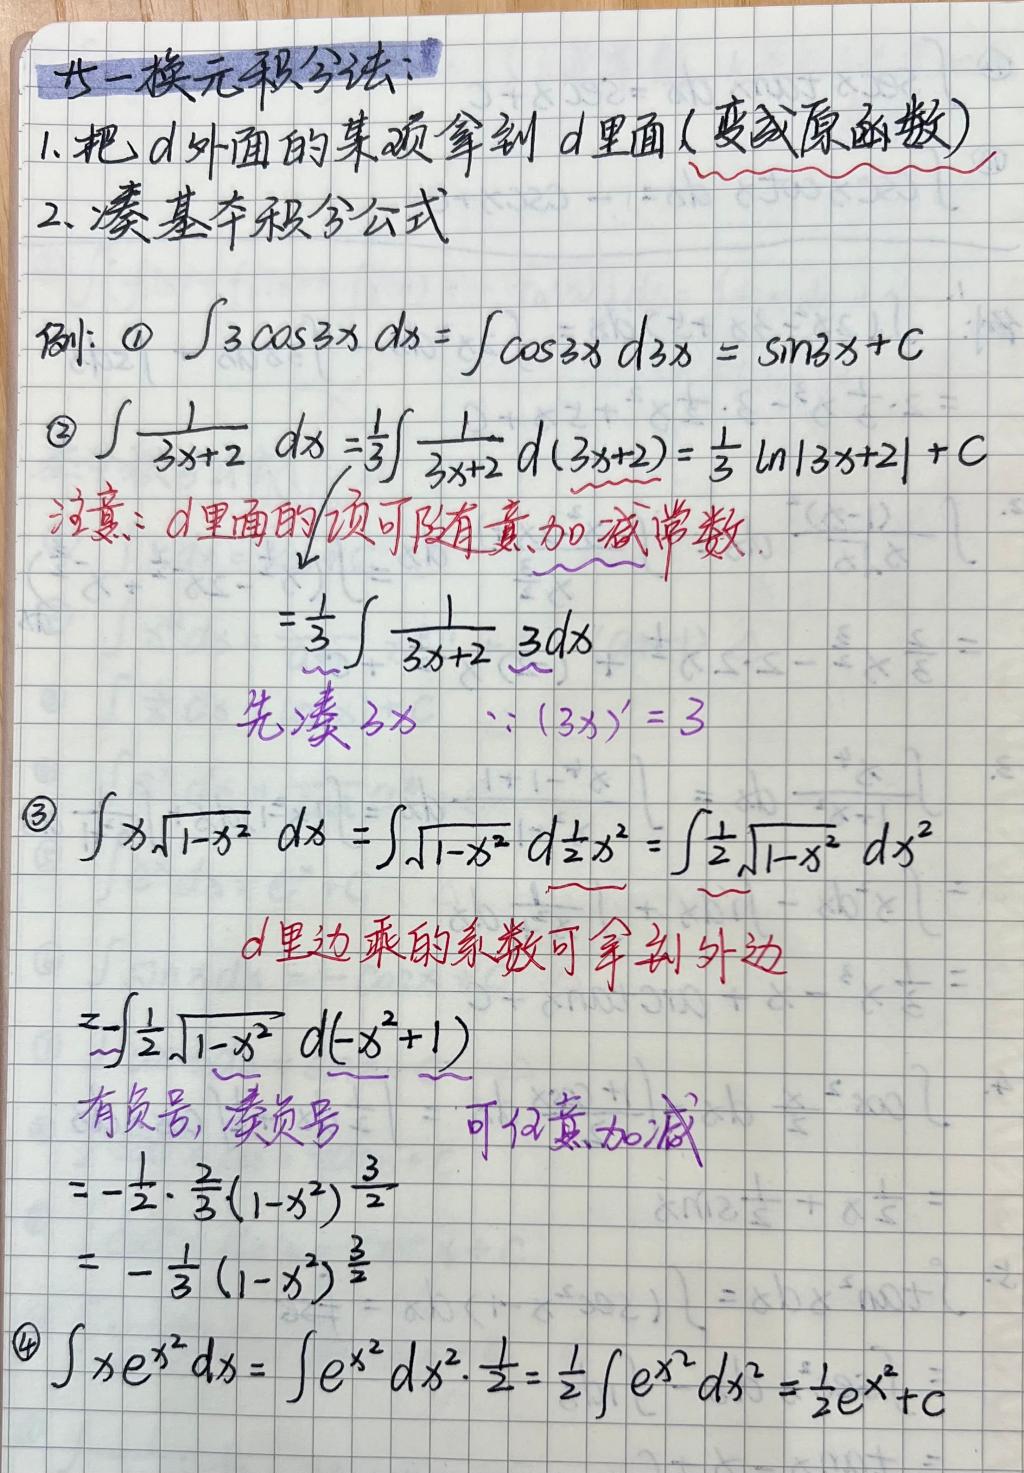 第一换元积分法:
1. 把d外面的某项拿到d里面(变成原函数)
2. 凑基本积分公式
例: ① ∫3cos3x dx = ∫cos3x d3x = sin3x + C
② ∫ 1/(3x+2) dx = 1/3 ∫ 1/(3x+2) d(3x+2) = 1/3 ln|3x+2| + C
注意: d里面的项可随意加减常数.
= 1/3 ∫ 1/(3x+2) 3dx
先凑3x ∵ (3x)' = 3
③ ∫x√(1-x²) dx = ∫√(1-x²) d 1/2 x² = ∫ 1/2 √(1-x²) dx²
d里边乘的系数可拿到外边
= -∫ 1/2 √(1-x²) d(-x²+1)
有负号, 凑负号 可任意加减
= -1/2 · 2/3 (1-x²)^(3/2)
= -1/3 (1-x²)^(3/2)
④ ∫xe^(x²) dx = ∫e^(x²) dx² · 1/2 = 1/2 ∫e^(x²) dx² = 1/2 e^(x²) + C